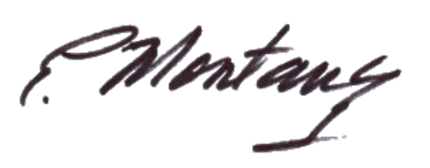 P. Montany